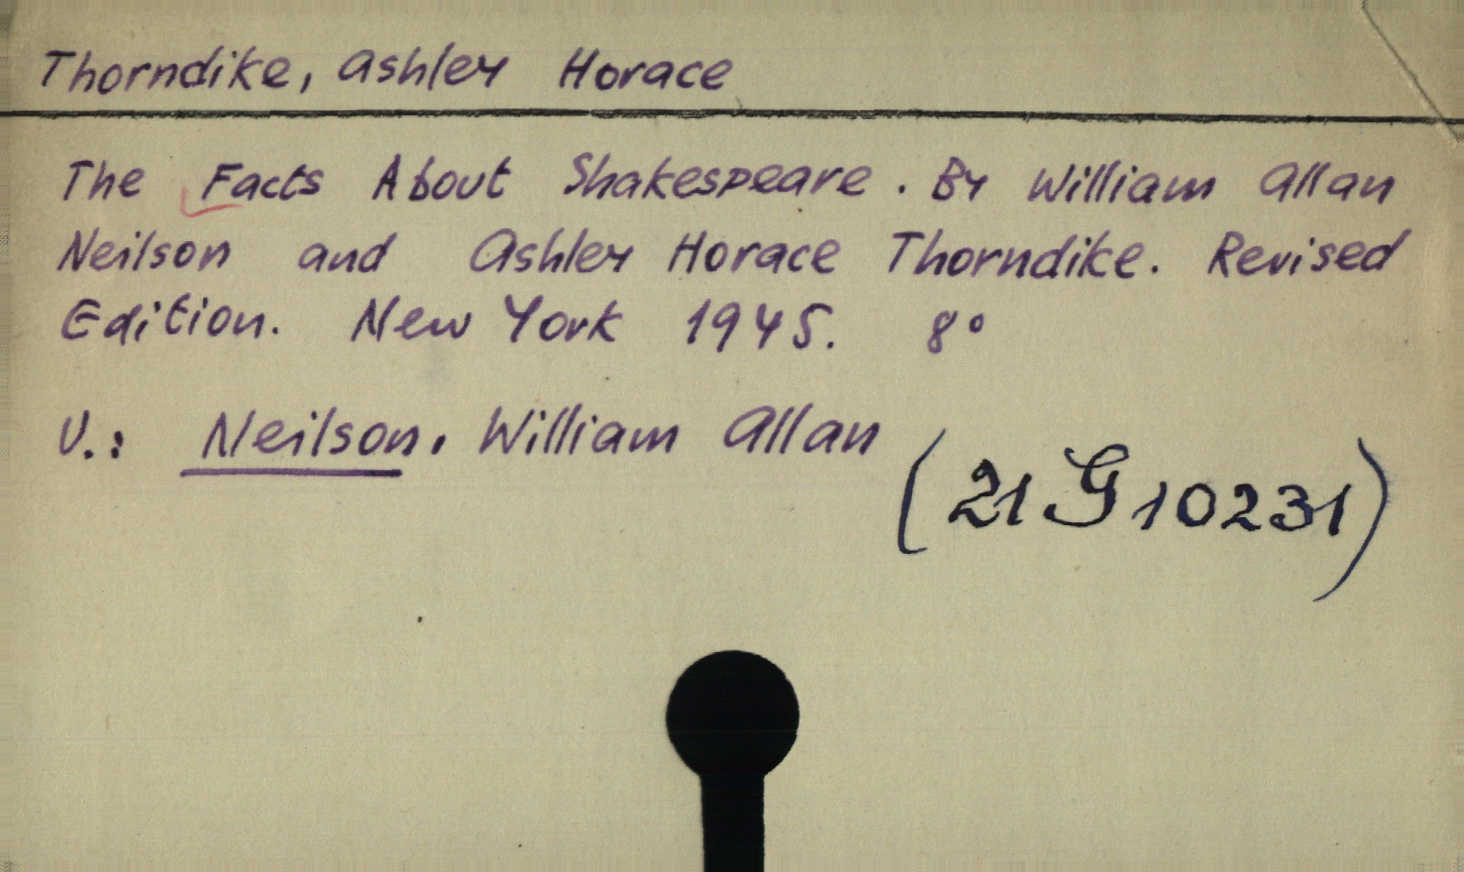 Thorndike, Ashley Horace
The Facts About Shakespeare. By William Allan
Neilson and Ashley Horace Thorndike. Revised
Edition. New York 1945. 8°
V.: Neilson, William Allan
(21 G 10231)